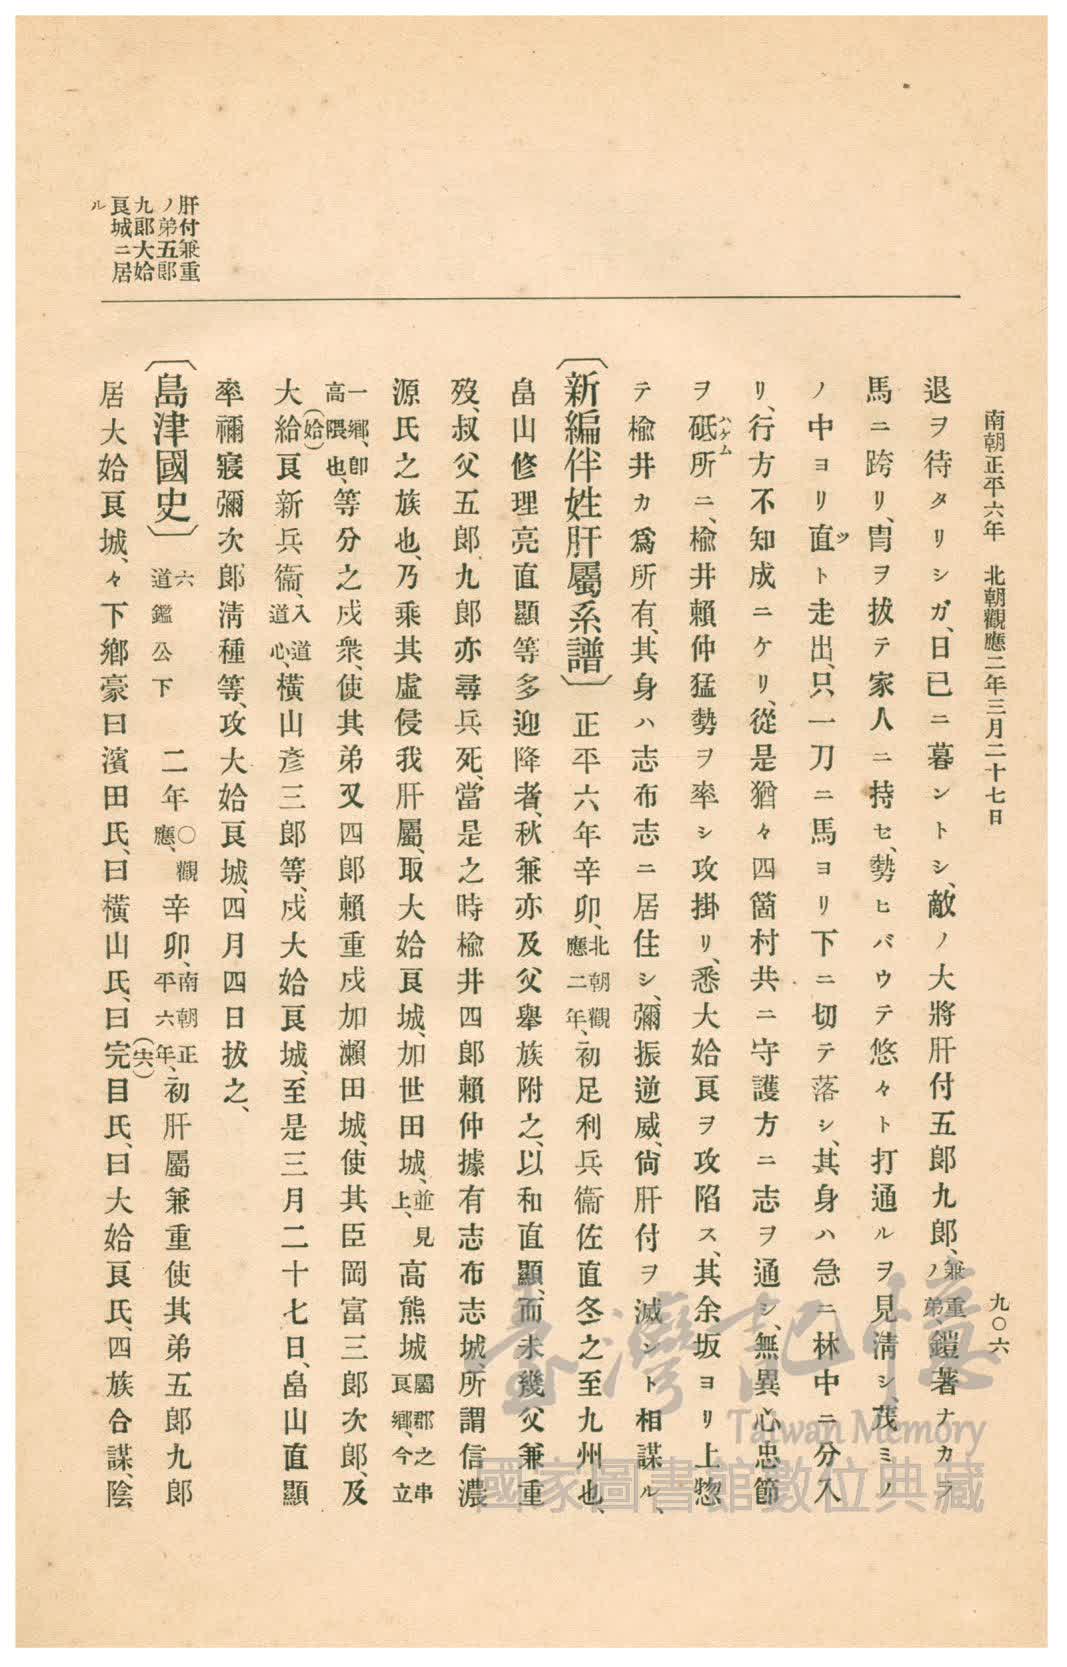 南朝正平六年　北朝觀應二年三月二十七日
九〇六
肝付兼重
ノ弟五郎
九郎大姶
良城ニ居
ル
退ヲ待タリシガ、日已ニ暮ントシ、敵ノ大將肝付五郎九郎、兼重ノ弟、鎧著ナカラ
馬ニ跨リ、冑ヲ拔テ家人ニ持セ、勢ヒバウテ悠々ト打通ルヲ見淸シ、茂ミノ
ノ中ヨリ直ツト走出、只一刀ニ馬ヨリ下ニ切テ落シ、其身ハ急ニ林中ニ分入
リ、行方不知成ニケリ、從是猶々四箇村共ニ守護方ニ志ヲ通シ、無異心忠節
ヲ砥ハゲム所ニ、楡井賴仲猛勢ヲ率シ攻掛リ、悉大姶良ヲ攻陷ス、其余坂ヨリ上惣
テ楡井カ爲所有、其身ハ志布志ニ居住シ、彌振逆威、尙肝付ヲ滅シト相謀ル、
〔新編伴姓肝屬系譜〕　正平六年辛卯、北朝觀應二年、初足利兵衞佐直冬之至九州也、
畠山修理亮直顯等多迎降者、秋兼亦及父舉族附之、以和直顯、而未幾父兼重
歿、叔父五郎、九郎亦尋兵死、當是之時楡井四郎賴仲據有志布志城、所謂信濃
源氏之族也、乃乘其虛侵我肝屬、取大姶良城、加世田城、並見上、高熊城屬郡之串良鄕、今立
一鄕、卽高隈也、等分之戍衆、使其弟又四郎賴重戍加瀨田城、使其臣岡富三郎次郎、及
大給(姶)良新兵衞、入道道心、橫山彥三郎等、戍大姶良城、至是三月二十七日、畠山直顯
率禰寢彌次郎淸種等、攻大姶良城、四月四日拔之、
〔島津國史〕六道鑑公下　二年〇觀應、辛卯、南朝正平六年、初肝屬兼重使其弟五郎九郎
居大姶良城、々下鄕豪曰濱田氏、曰橫山氏、曰完(宍)目氏、曰大姶良氏、四族合謀、陰
臺灣記憶
Taiwan Memory
國家圖書館數位典藏